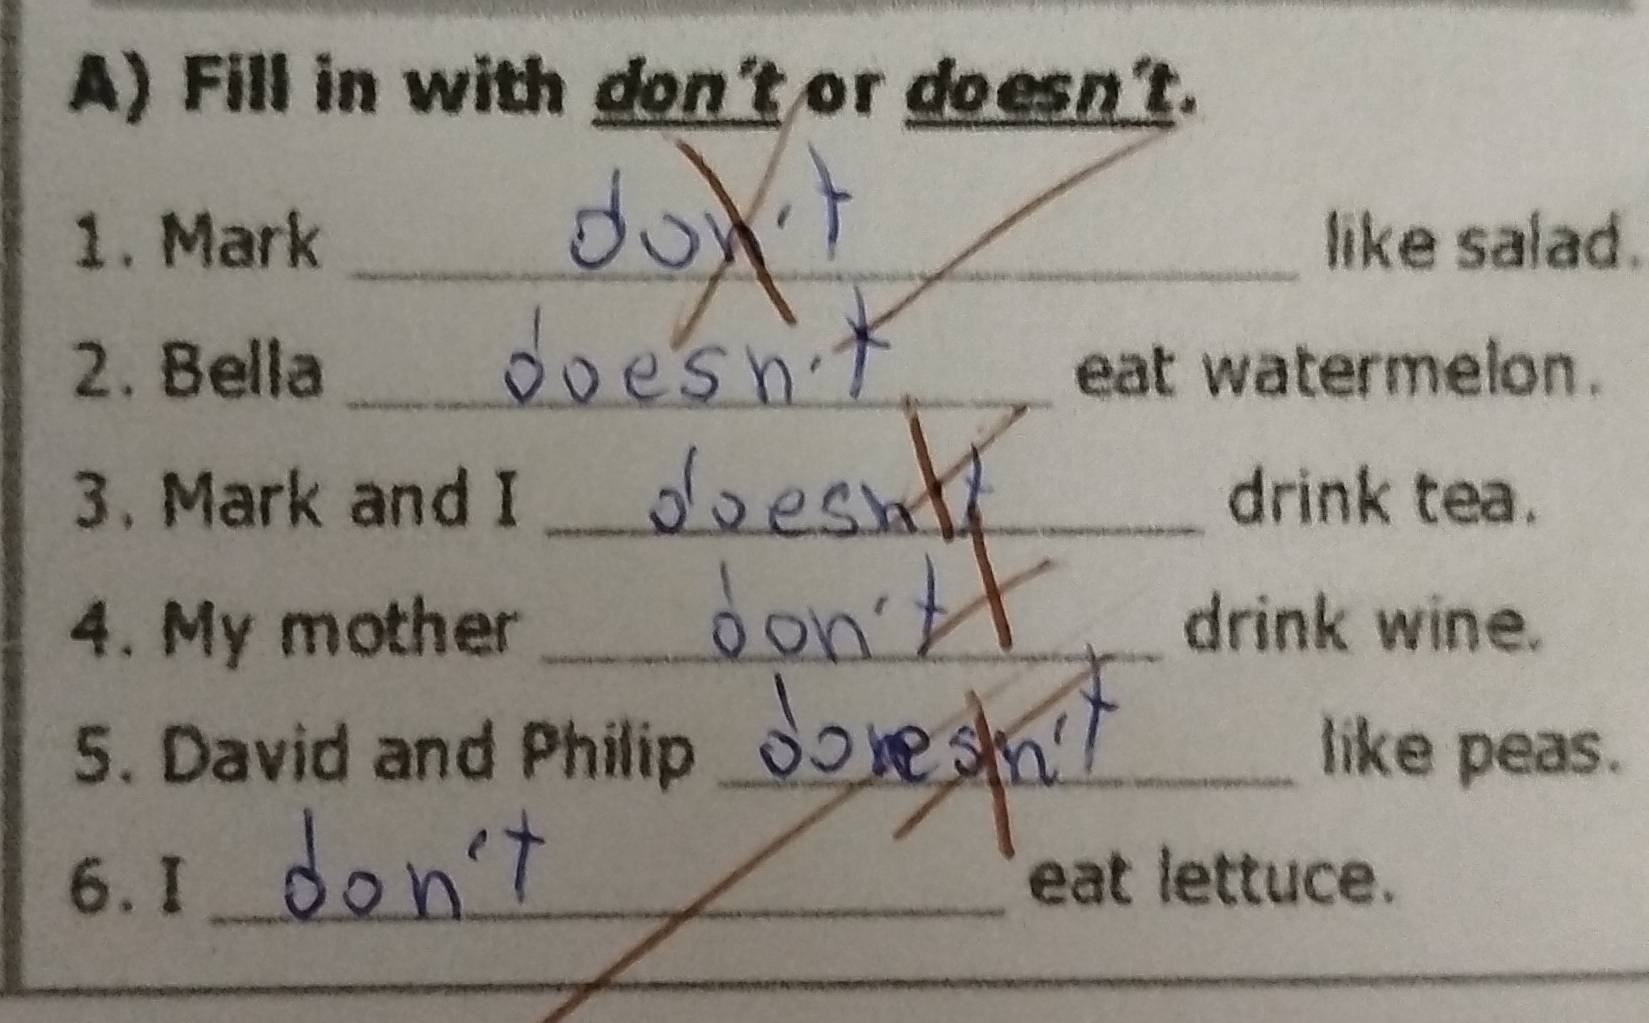 A) Fill in with don't or doesn't.
1. Mark don't like salad.
2. Bella doesn't eat watermelon.
3. Mark and I doesn't drink tea.
4. My mother don't drink wine.
5. David and Philip doesn't like peas.
6. I don't eat lettuce.